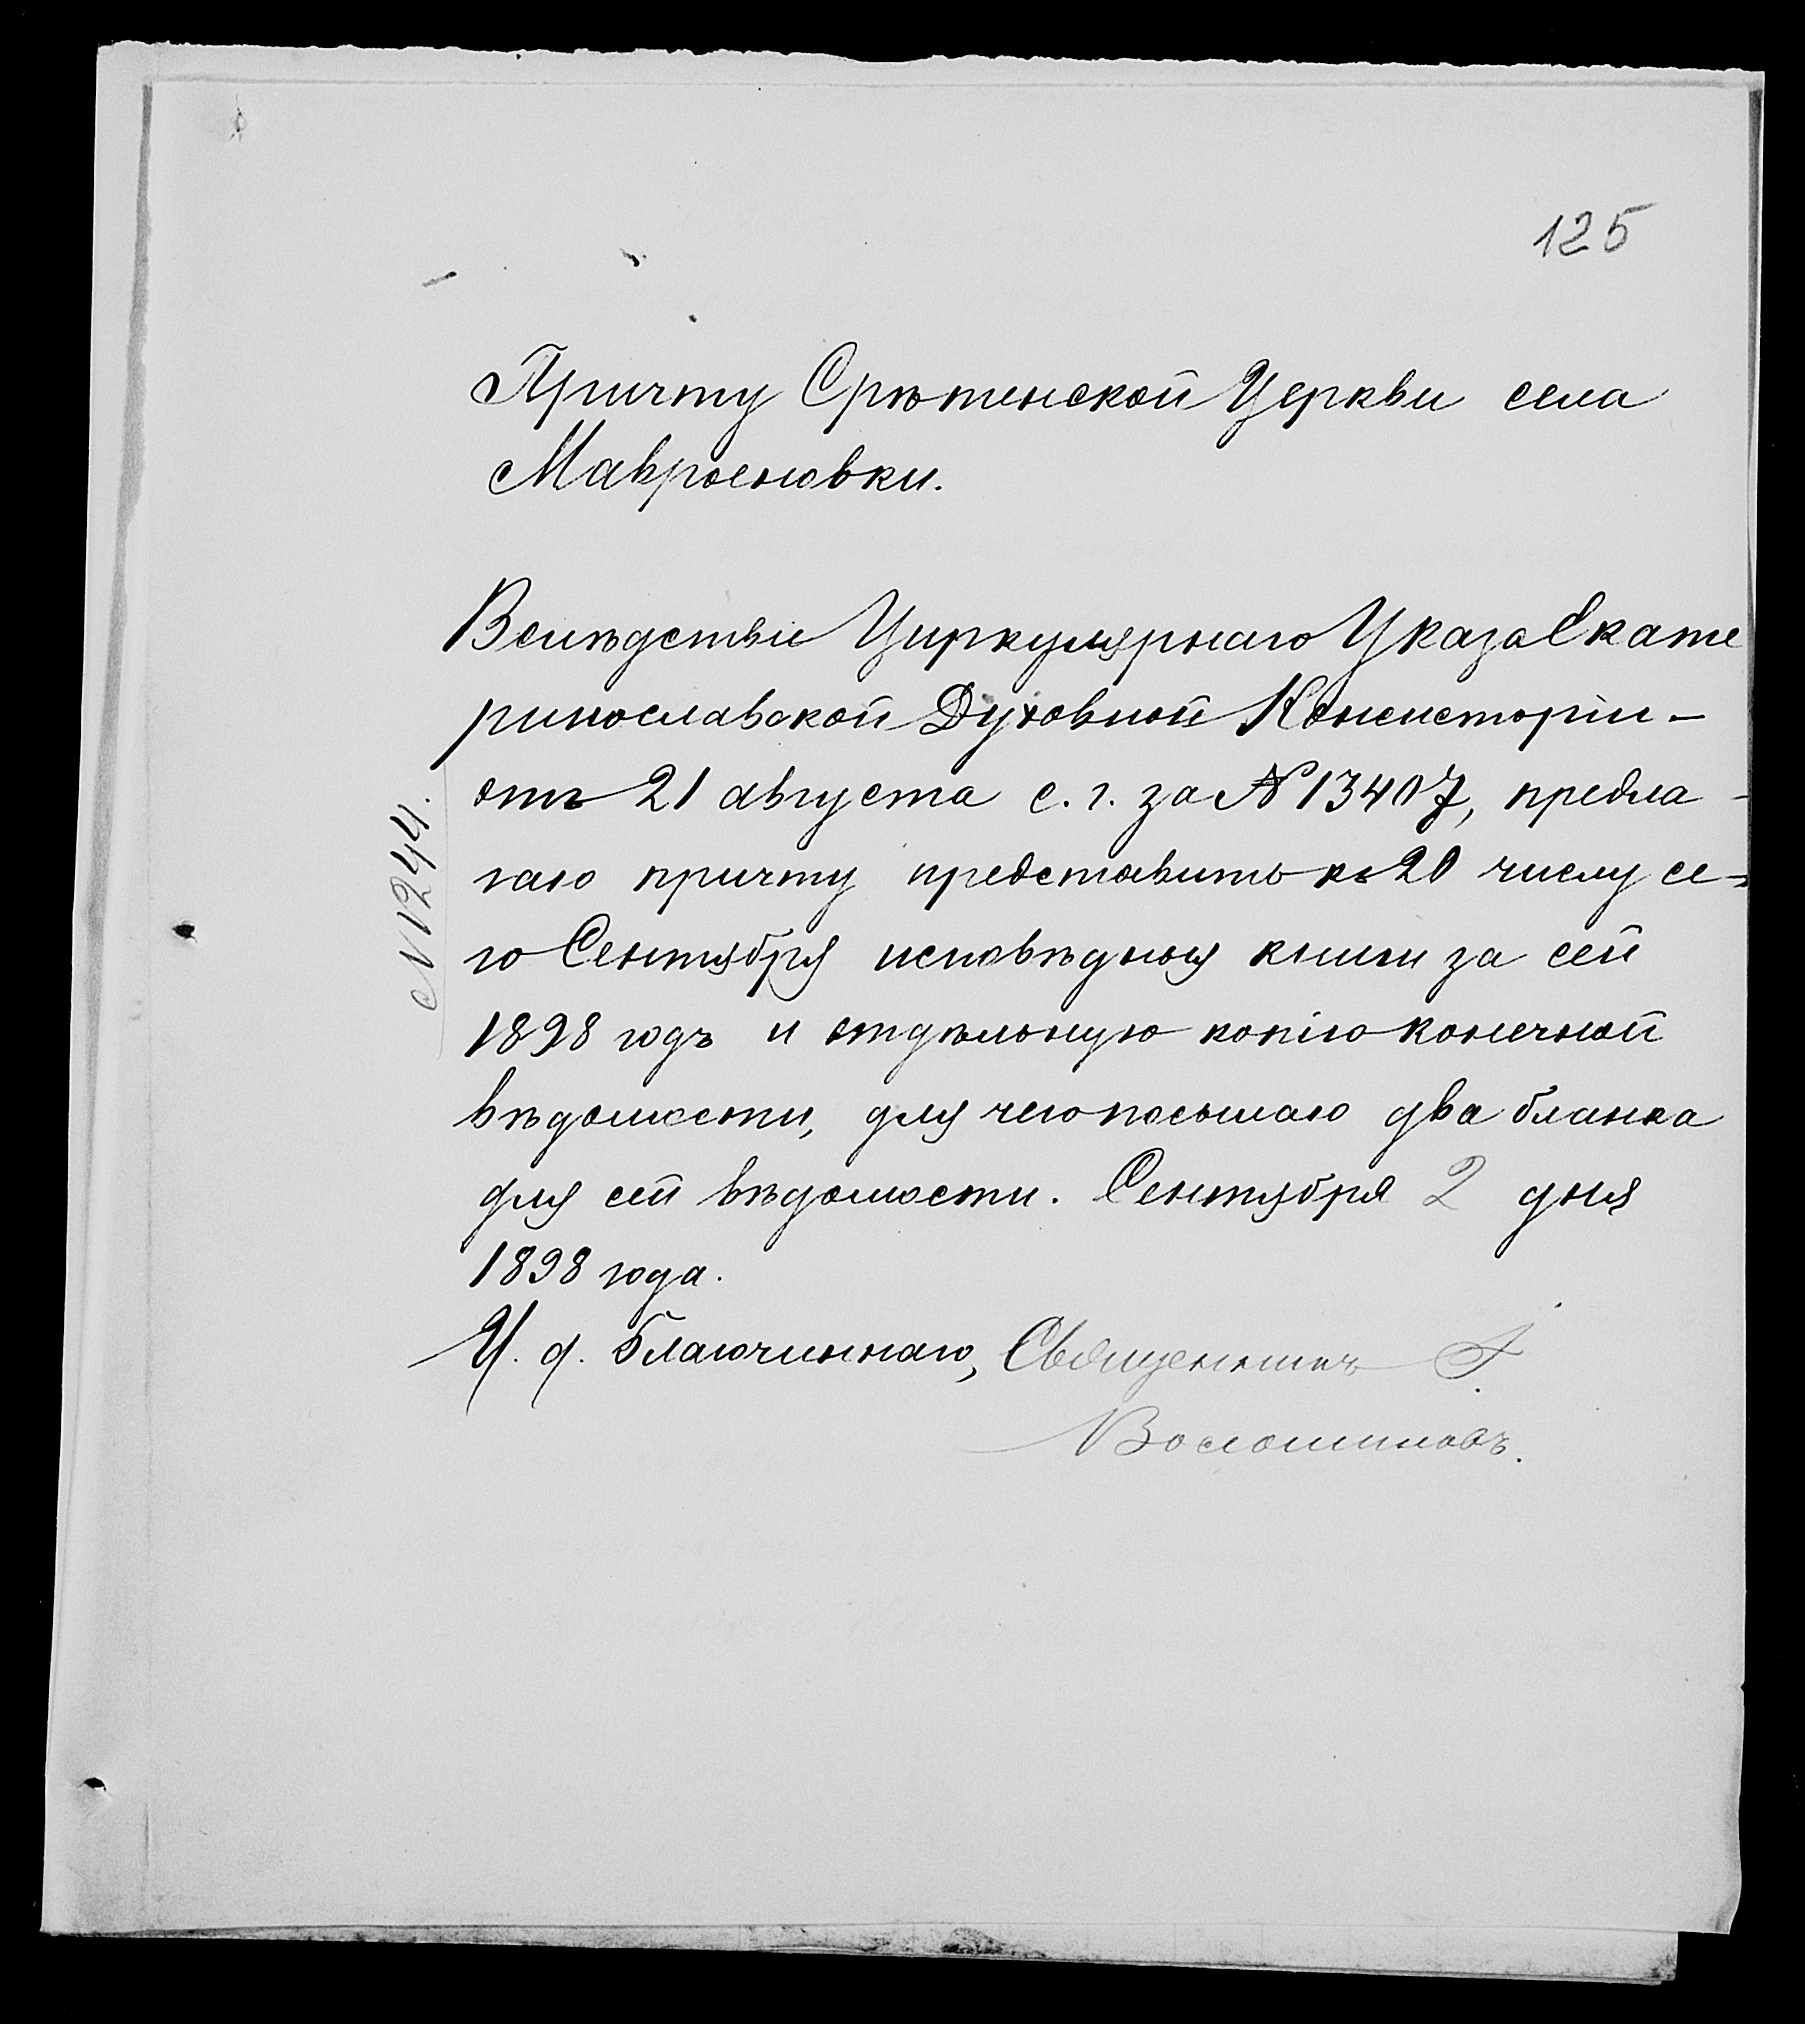 125
Причту Срѣтенской Церкви села
Мавроеновки.
Вслѣдствіе Циркулярнаго Указа Екате
ринославской Духовной Консисторіи -
отъ 21 августа с. г. за № 13407, предла -
гаю причту представить къ 20 числу се-
го Сентября исповѣдныя книги за сей
1898 годъ и отдѣльную копію конечной
вѣдомости, для чего посылаю два бланка
для сей вѣдомости. Сентября 2 дня
1898 года.
И. д. Благочиннаго, Священникъ Г.
Волошиновъ.
№ 1244.